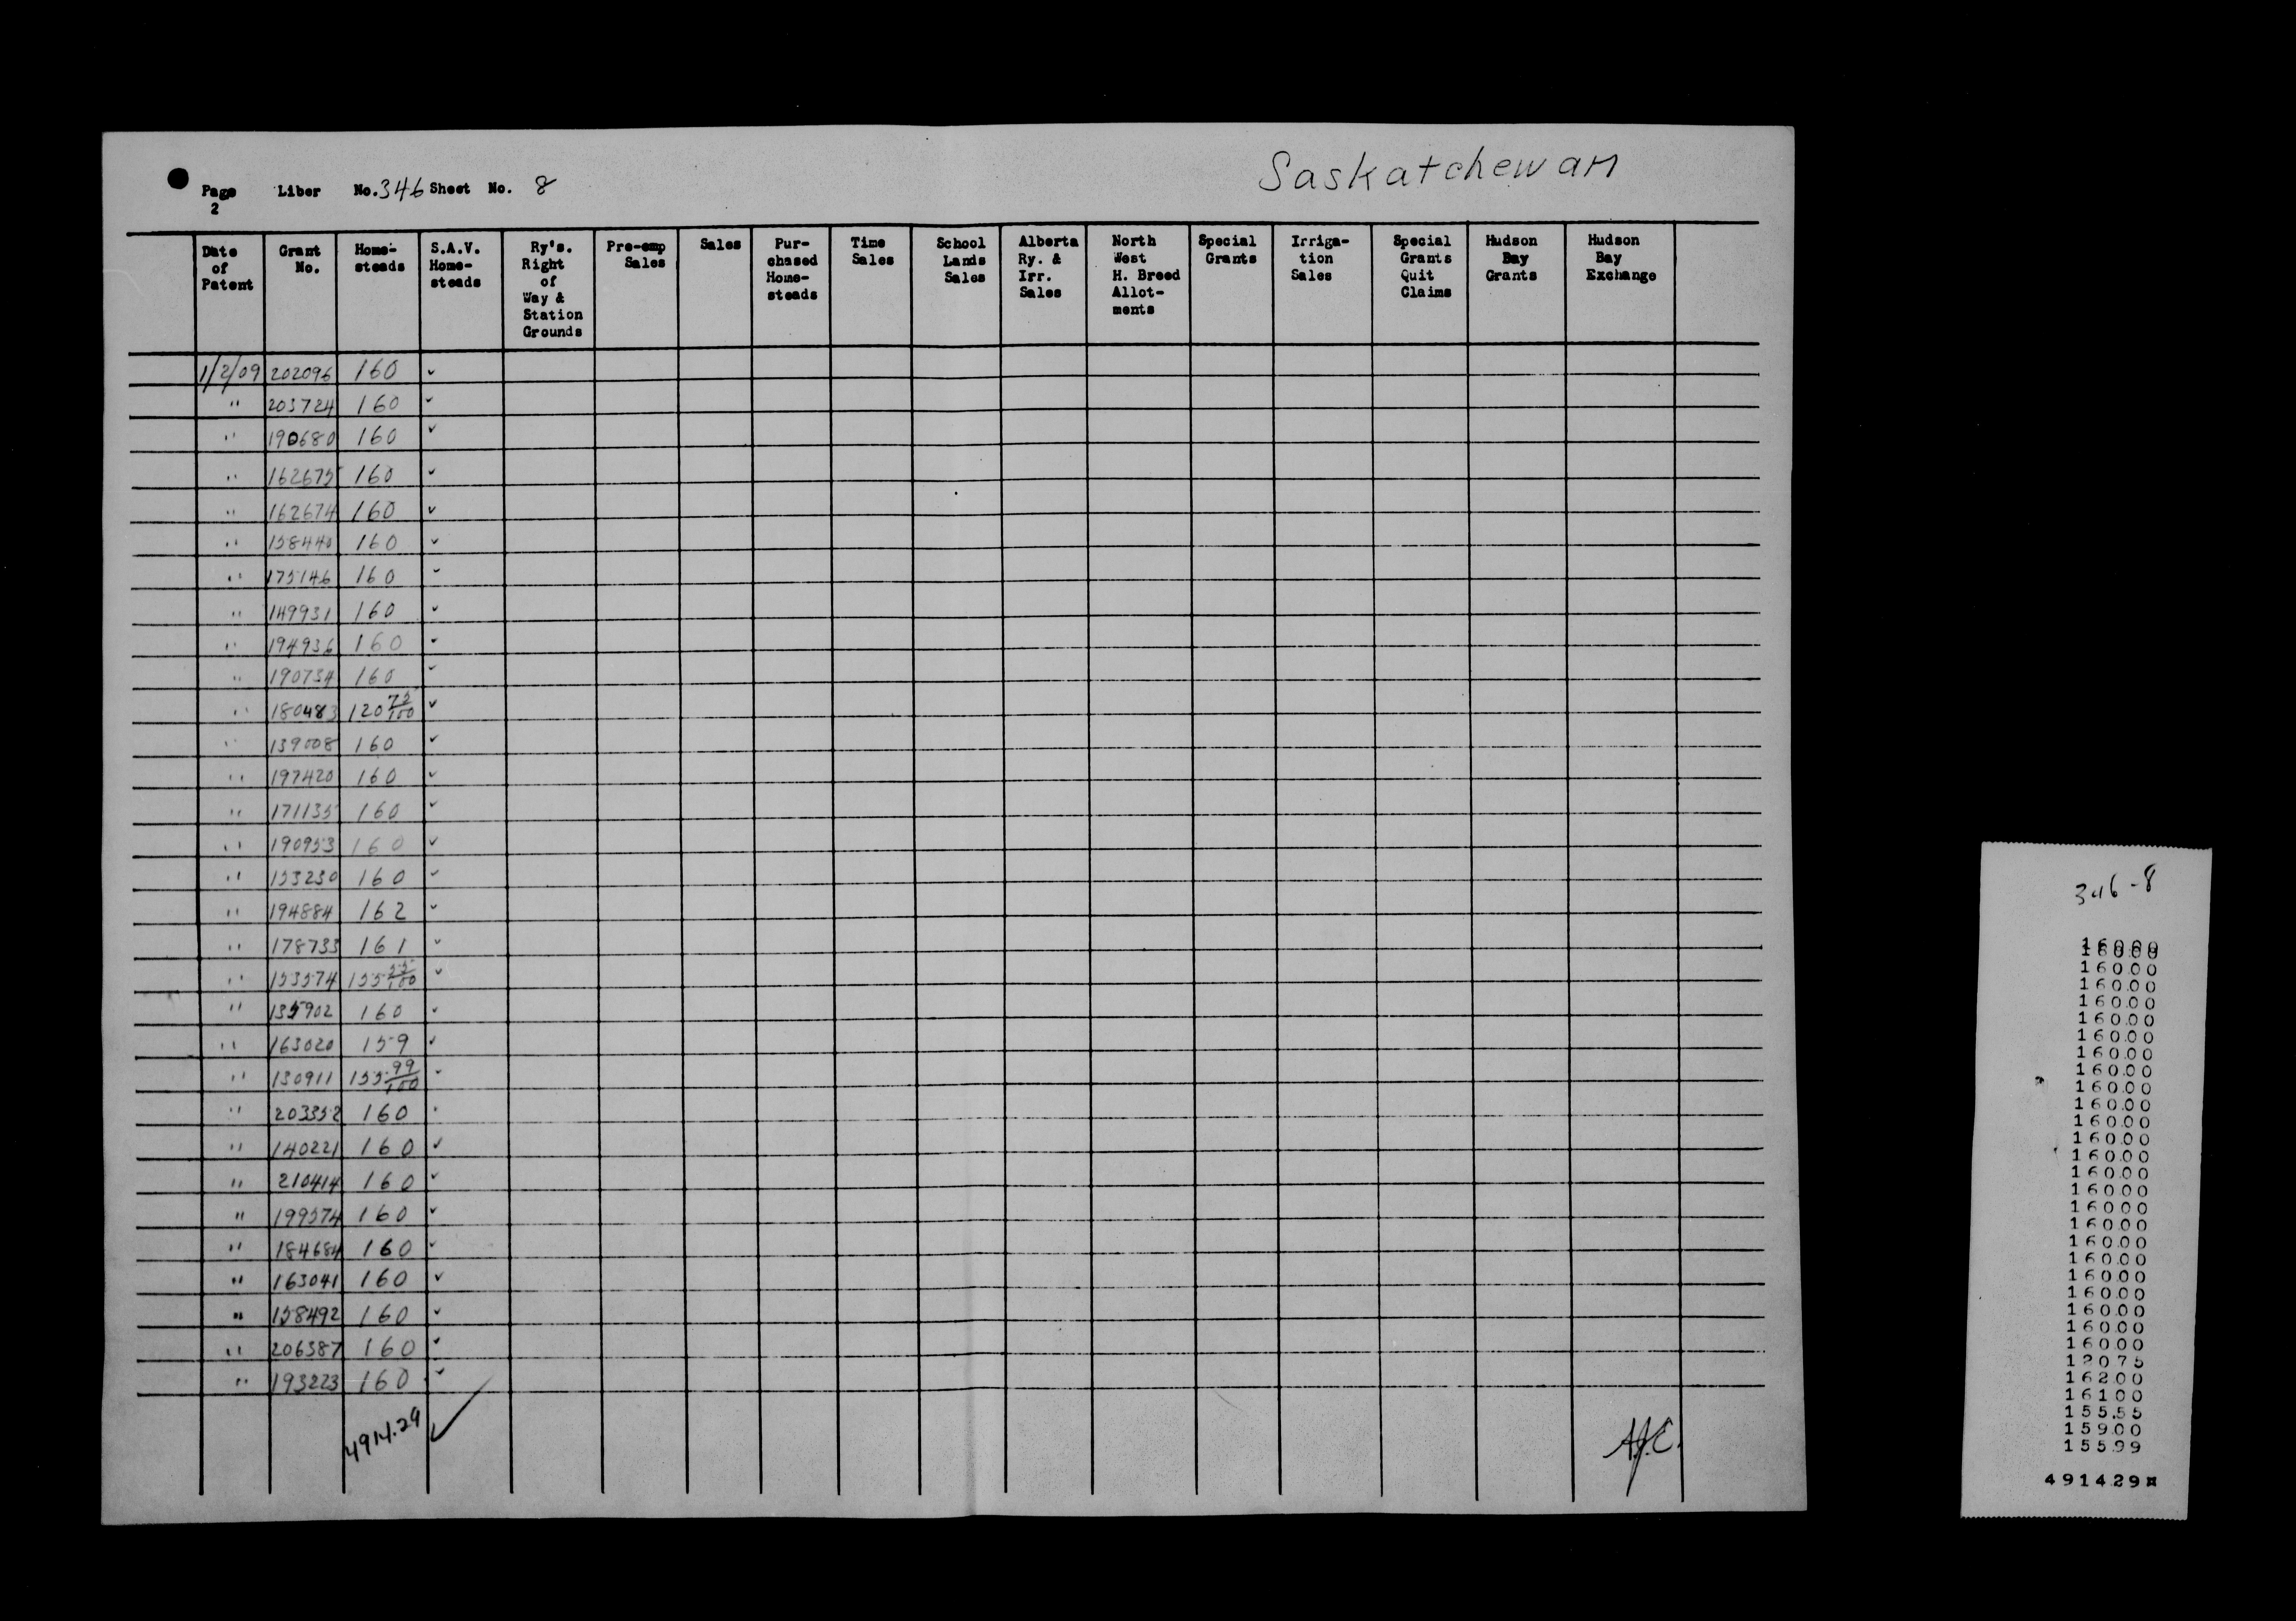 Saskatchewan
Page Liber No. 346 Sheet No. 8
2
Date of Patent | Grant No. | Home-steads | S.A.V. Home-steads | Ry's. Right of Way & Station Grounds | Pre-emp Sales | Sales | Pur-chased Home-steads | Time Sales | School Lands Sales | Alberta Ry. & Irr. Sales | North West H. Breed Allot-ments | Special Grants | Irriga-tion Sales | Special Grants Quit Claims | Hudson Bay Grants | Hudson Bay Exchange
1/2/09 202096 160 ✓
" 203724 160 ✓
" 190680 160 ✓
" 162675 160 ✓
" 162674 160 ✓
" 158440 160 ✓
" 175146 160 ✓
" 149931 160 ✓
" 194936 160 ✓
" 190734 160 ✓
" 180483 120 75/100 ✓
" 139008 160 ✓
" 197420 160 ✓
" 171135 160 ✓
" 190953 160 ✓
" 153230 160 ✓
" 194884 162 ✓
" 178733 161 ✓
" 153574 155 55/100 ✓
" 135902 160 ✓
" 163020 159 ✓
" 130911 155 99/100 ✓
" 203352 160
" 140221 160 ✓
" 210414 160 ✓
" 199574 160 ✓
" 184684 160 ✓
" 163041 160 ✓
" 158492 160 ✓
" 206387 160 ✓
" 193223 160 ✓
4914.29 ✓
A.J.C.
346-8
160.00
160.00
160.00
160.00
160.00
160.00
160.00
160.00
160.00
160.00
160.00
160.00
160.00
160.00
160.00
160.00
160.00
160.00
160.00
160.00
160.00
160.00
160.00
160.00
160.00
120.75
162.00
161.00
155.55
159.00
155.99
4914.29¤